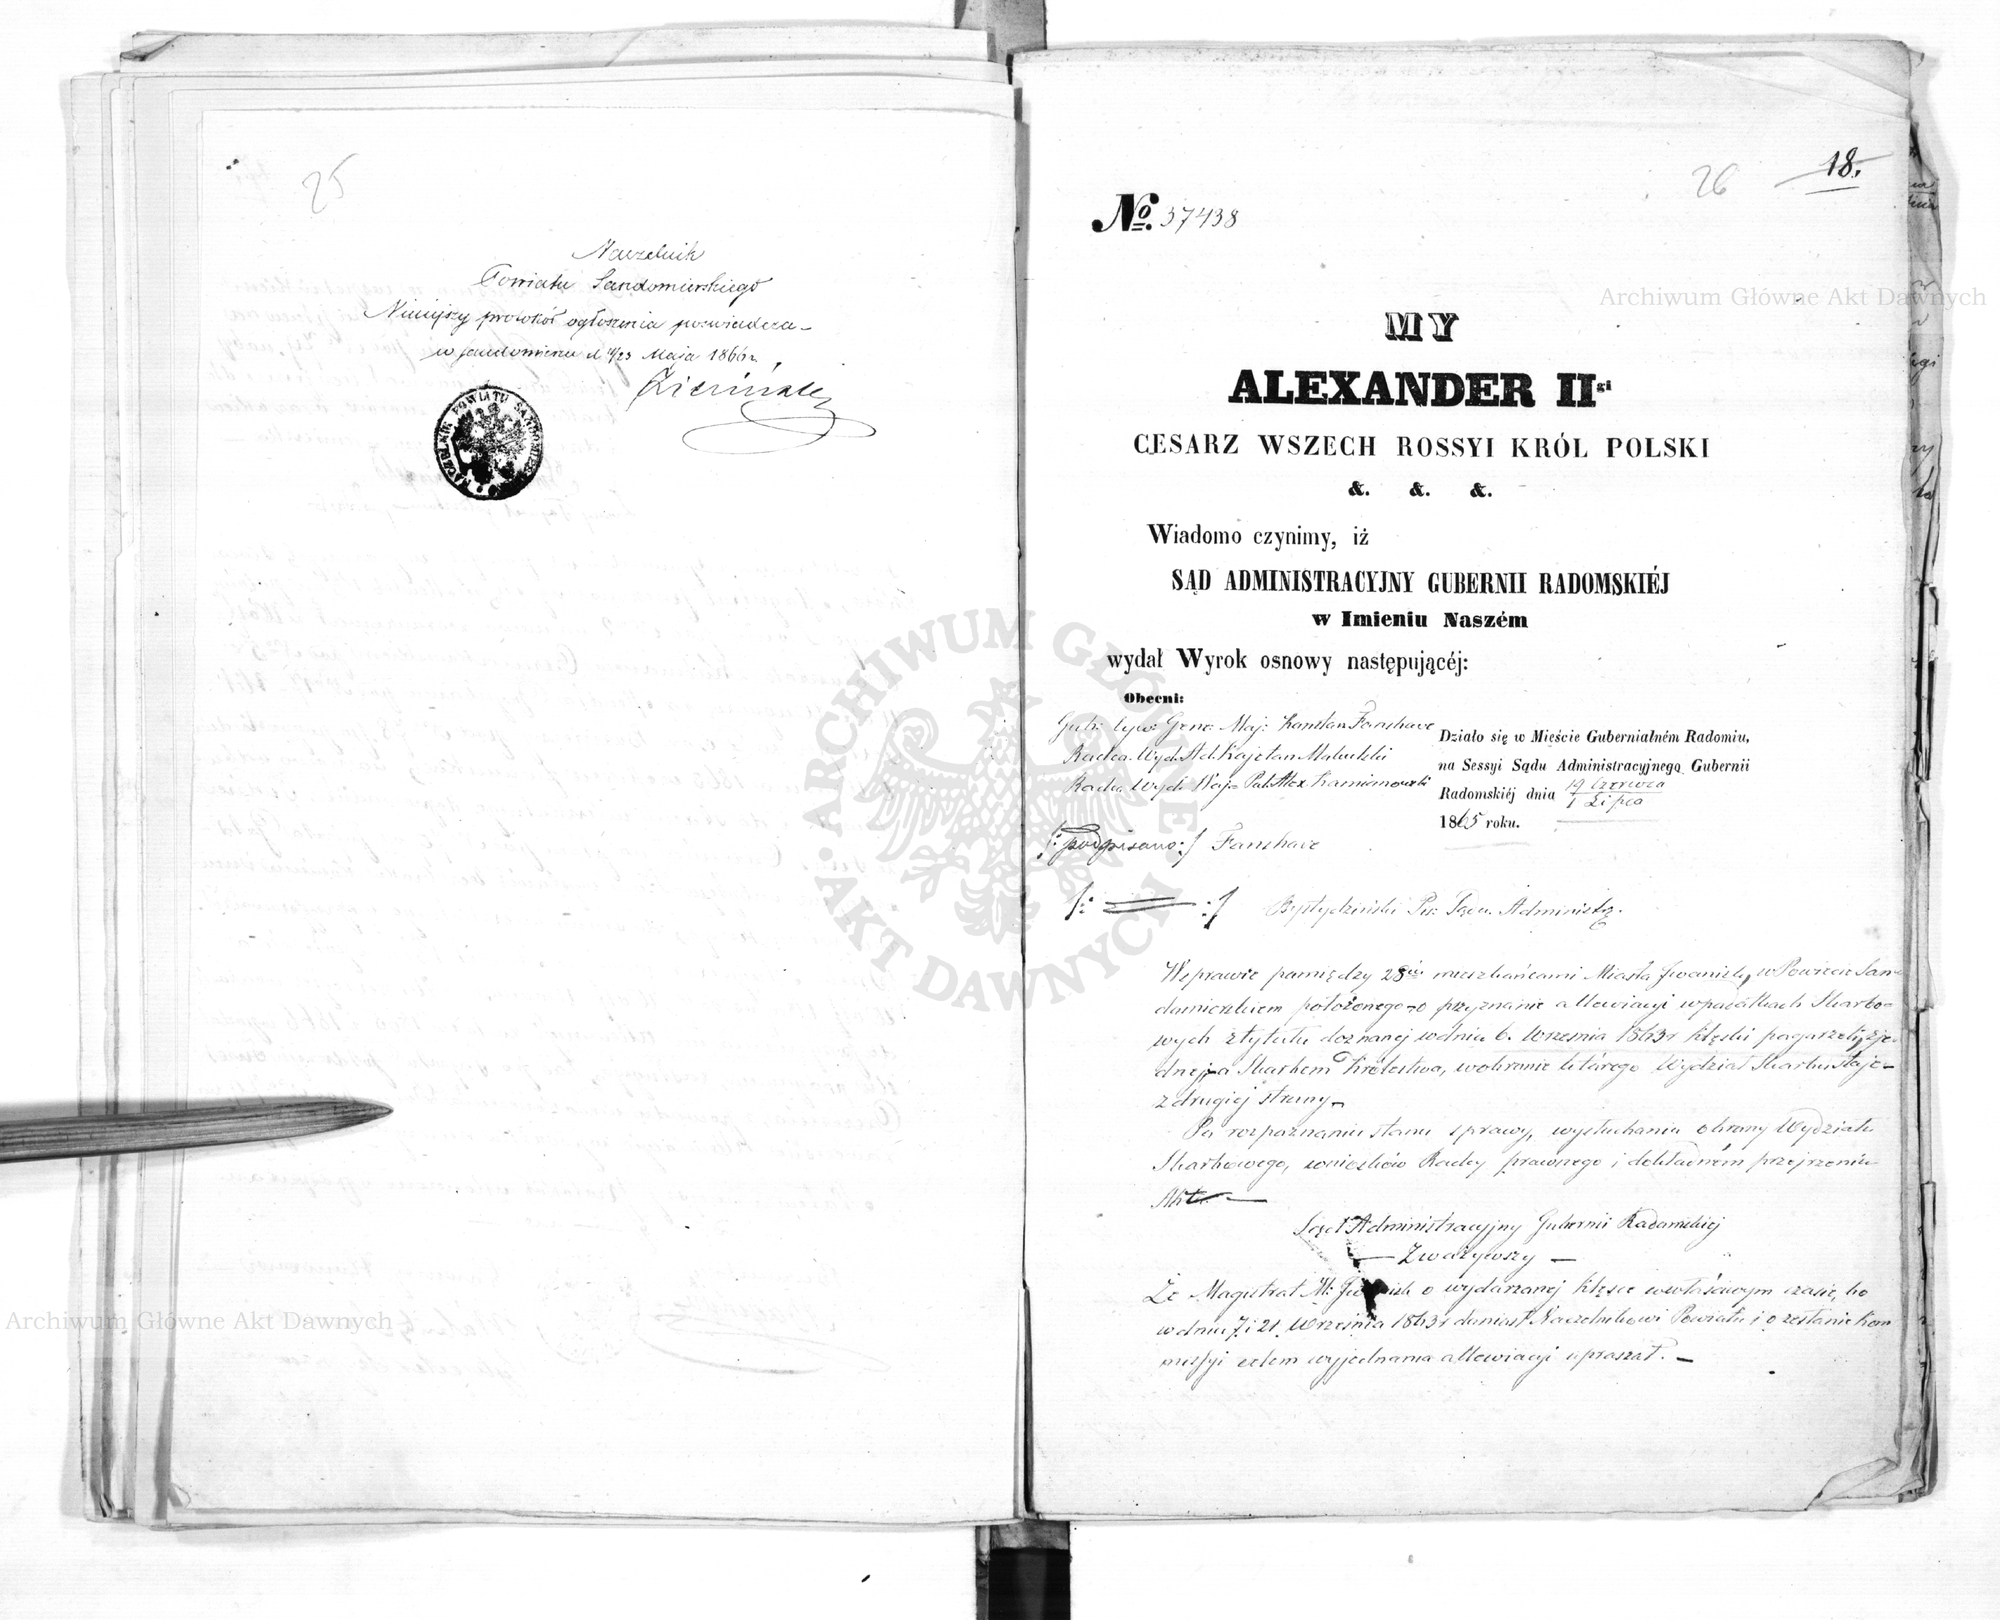 25
Naczelnik
Powiatu Sandomierskiego
Niniejszy protokół ogłoszenia poświadcza
w Sandomierzu d 11/23 Maja 1866 r.
NACZELNIK POWIATU SANDOMIERSKIEGO
26
18.
No. 37438
MY
ALEXANDER IIgi
CESARZ WSZECH ROSSYI KRÓL POLSKI
&. &. &.
Wiadomo czynimy, iż
SĄD ADMINISTRACYJNY GUBERNII RADOMSKIÉJ
w Imieniu Naszém
wydał Wyrok osnowy następującéj:
Obecni:
Gub: Cyw: Gene: Maj: Fanshave
Radca Wyd. Ad. Kajetan
Radca Wyd: Woj: Pal: Alex. Kamianowski
Działo się w Mieście Gubernialném Radomiu,
na Sessyi Sądu Administracyjnego Gubernii
Radomskiéj dnia 19 Czerwca / 1 Lipca
1865 roku.
/: podpisano :/ Fanshave
/: = :/ Bystydziński Pis: Sądu Administr.
W sprawie pomiędzy 28iu mieszkańcami Miasta Iwanisk, w Powiecie San-
domierskiem położonego o przyznanie allewiacyi w podatkach Skarbo-
wych z tytułu doznanej w dniu 6. Września 1863 r klęski pogorzeli, z je-
dnej, a Skarbem Królestwa, w obronie którego Wydział Skarbu staje
z drugiej strony
Po rozpoznaniu stanu sprawy, wysłuchaniu obrony Wydziału
Skarbowego, wniosków Radcy prawnego i dokładném przejrzeniu
Akt
Sąd Administracyjny Gubernii Radomskiej
Zważywszy
Że Magistrat M: Iwanisk o wydarzonej klęsce w właściwym czasie, bo
w dniu 7 i 21 Września 1863 r doniosł Naczelnikowi Powiatu i o zesłanie Kom
missyi celem wyjednania allewiacyi upraszał.
Archiwum Główne Akt Dawnych
Archiwum Główne Akt Dawnych
ARCHIWUM GŁÓWNE AKT DAWNYCH